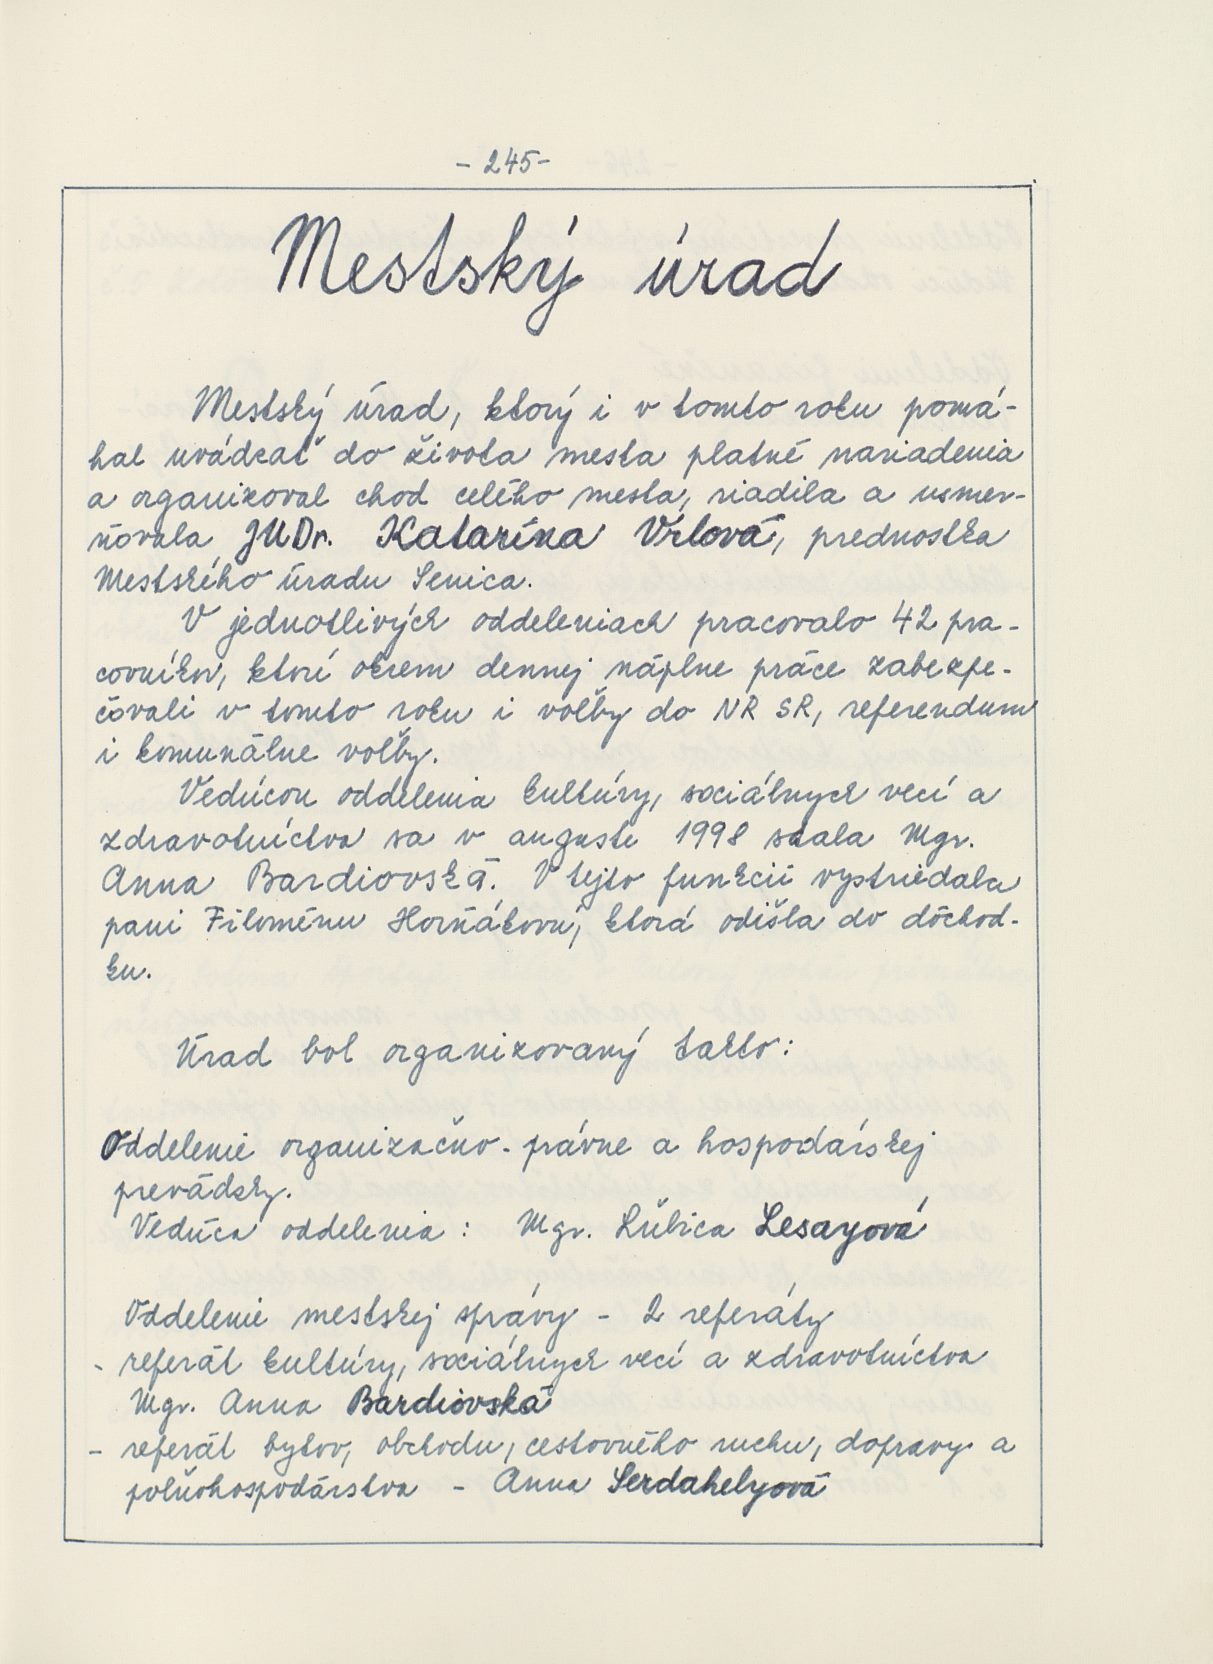 - 245 -
Mestský úrad
Mestský úrad, ktorý i v tomto roku pomá-
hal uvádzať do života mesta platné nariadenia
a organizoval chod celého mesta, riadila a usmer-
ňovala JUDr. Katarína Vrlová, prednostka
Mestského úradu Senica.
V jednotlivých oddeleniach pracovalo 42 pra-
covníkov, ktorí okrem dennej náplne práce zabezpe-
čovali v tomto roku i voľby do NR SR, referendum
i komunálne voľby.
Vedúcou oddelenia kultúry, sociálnych vecí a
zdravotníctva sa v auguste 1998 stala Mgr.
Anna Bardiovská. V tejto funkcii vystriedala
pani Filoménu Horňákovú, ktorá odišla do dôchod-
ku.
Úrad bol organizovaný takto:
Oddelenie organizačno-právne a hospodárskej
prevádzky.
Vedúca oddelenia: Mgr. Ľubica Lesayová
Oddelenie mestskej správy - 2 referáty
- referát kultúry, sociálnych vecí a zdravotníctva
Mgr. Anna Bardiovská
- referát bytov, obchodu, cestovného ruchu, dopravy a
poľnohospodárstva - Anna Serdahelyová